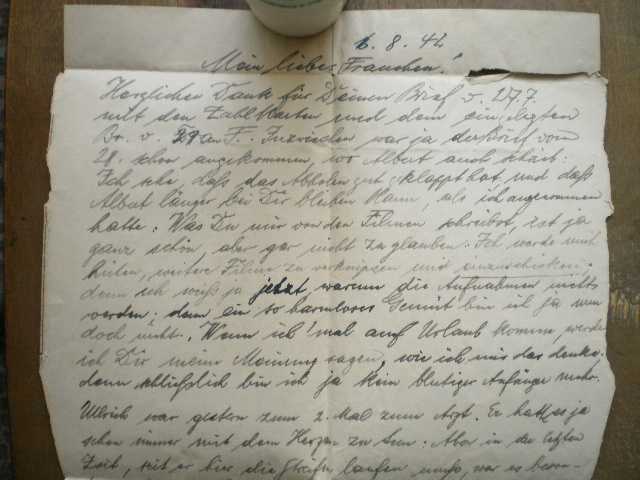 6. 8. 42
Mein liebes Frauchen!
Herzlichen Dank für Deinen Brief v. 27.7.
mit den Zahlkarten und dem eingelegten
Br. v. 28 an F. Inzwischen war ja der Brief vom
28. schon angekommen, wo Albert auch schrieb.
Ich sehe, daß das Abholen gut geklappt hat und daß
Albert länger bei Dir bleiben kann, als ich angenommen
hatte. Was Du mir von den Filmen schreibst, ist ja
ganz schön, aber gar nicht zu glauben. Ich werde mich
hüten, weitere Filme zu verknipsen und einzuschicken,
denn ich weiß ja jetzt warum die Aufnahmen nichts
werden; denn ein so harmloses Gemüt bin ich ja nun
doch nicht. Wenn ich 'mal auf Urlaub komm, werde
ich Dir meine Meinung sagen, wie ich mir das denke,
denn schließlich bin ich ja kein blutiger Anfänger mehr.
Ullrich war gestern zum 2. Mal zum Arzt. Er hatte es ja
schon immer mit dem Herzen zu tun. Aber in der letzten
Zeit, seit er hier die Streife laufen muß, war es beson-